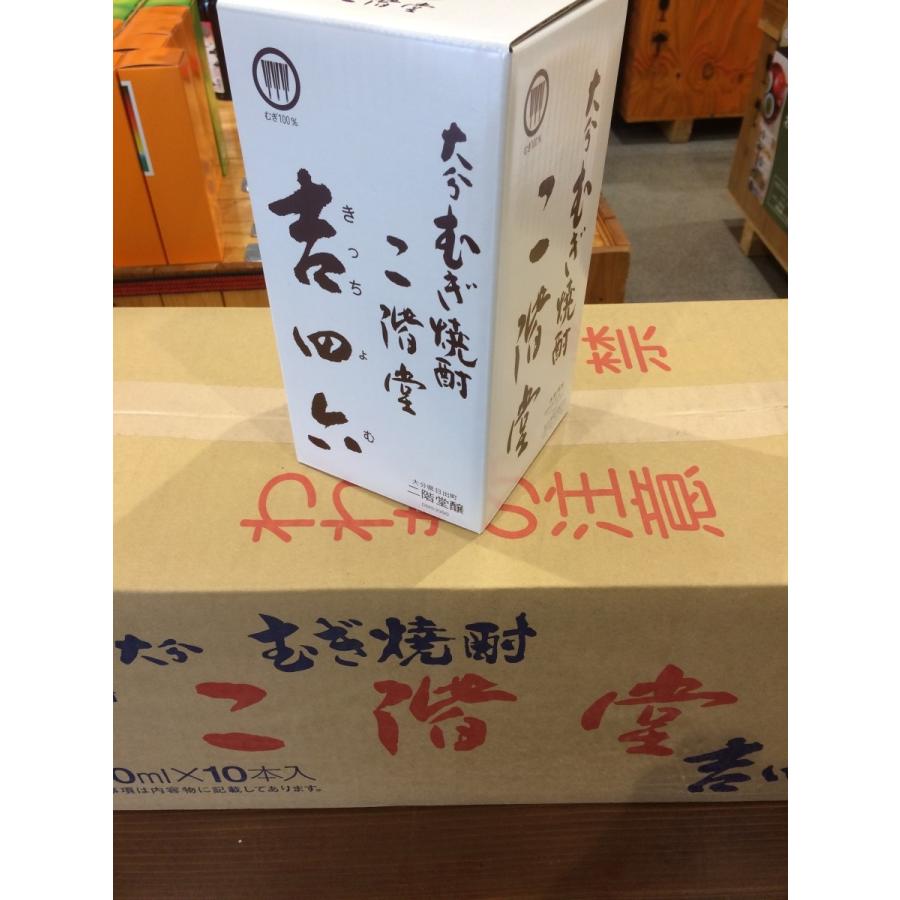 むぎ100%
大分むぎ焼酎
二階堂
吉四六
きっちょむ
大分県日出町
二階堂醸
むぎ100%
大分むぎ焼酎
二階堂
禁
われもの注意
大分 むぎ焼酎
二階堂
吉四
0ml×10本入
事項は内容物に記載してあります。